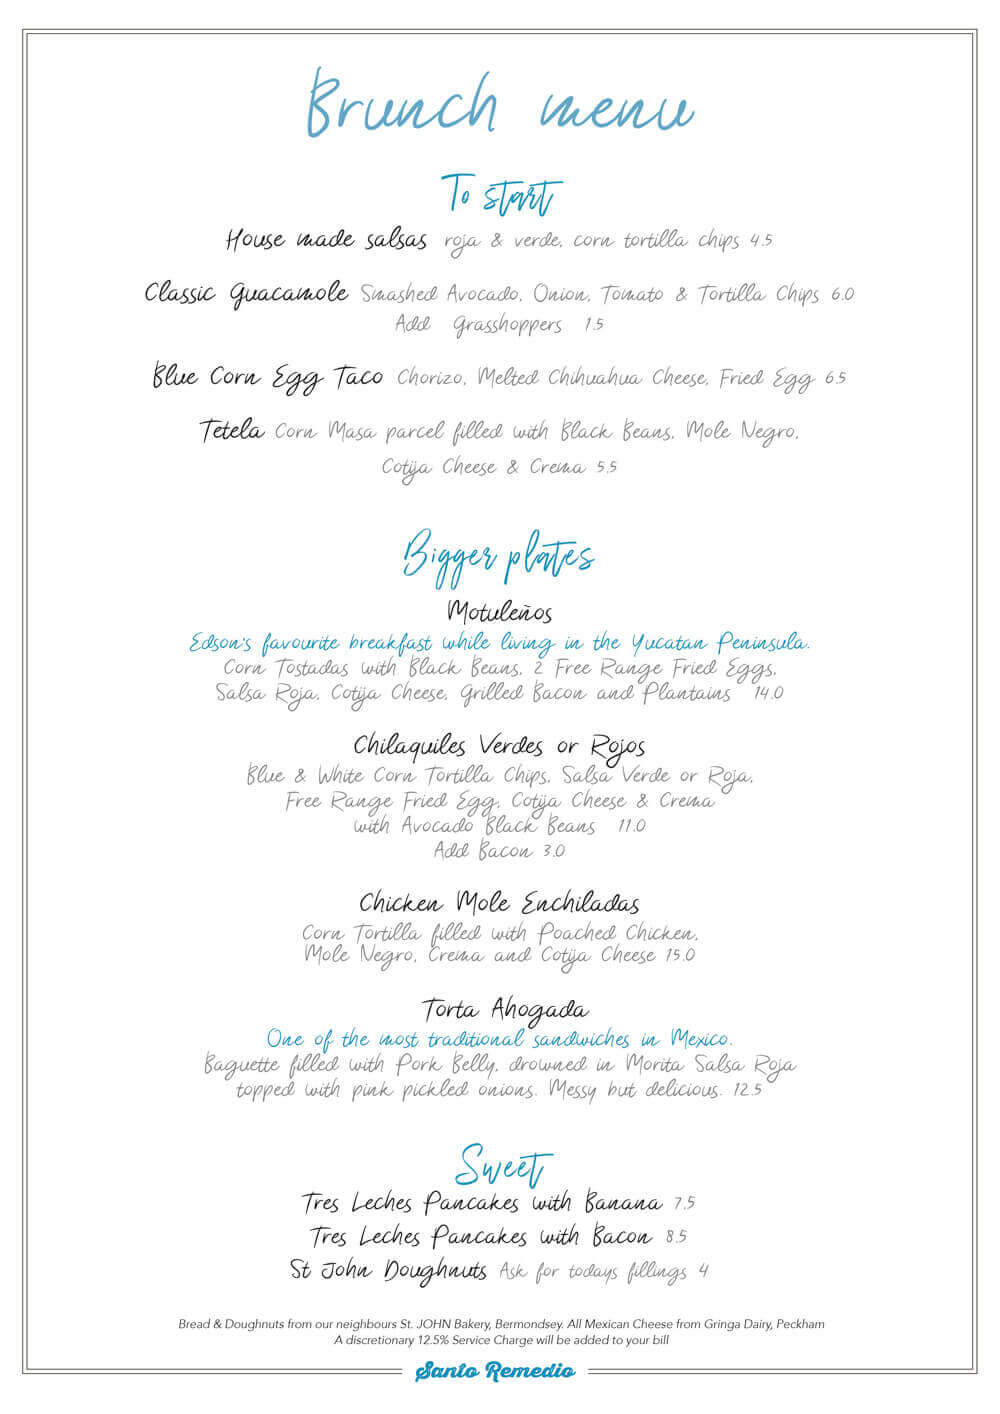 Brunch menu
To start
House made salsas roja & verde, corn tortilla chips 4.5
Classic Guacamole Smashed Avocado, Onion, Tomato & Tortilla Chips 6.0
Add Grasshoppers 1.5
Blue Corn Egg Taco Chorizo, Melted Chihuahua Cheese, Fried Egg 6.5
Tetela Corn Masa parcel filled with Black Beans, Mole Negro,
Cotija Cheese & Crema 5.5
Bigger plates
Motuleños
Edson's favourite breakfast while living in the Yucatan Peninsula.
Corn Tostadas with Black Beans, 2 Free Range Fried Eggs,
Salsa Roja, Cotija Cheese, Grilled Bacon and Plantains 14.0
Chilaquiles Verdes or Rojos
Blue & White Corn Tortilla Chips, Salsa Verde or Roja,
Free Range Fried Egg, Cotija Cheese & Crema
with Avocado Black Beans 11.0
Add Bacon 3.0
Chicken Mole Enchiladas
Corn Tortilla filled with Poached Chicken,
Mole Negro, Crema and Cotija Cheese 15.0
Torta Ahogada
One of the most traditional sandwiches in Mexico.
Baguette filled with Pork Belly, drowned in Morita Salsa Roja
topped with pink pickled onions. Messy but delicious. 12.5
Sweet
Tres Leches Pancakes with Banana 7.5
Tres Leches Pancakes with Bacon 8.5
St John Doughnuts Ask for todays fillings 4
Bread & Doughnuts from our neighbours St. JOHN Bakery, Bermondsey. All Mexican Cheese from Gringa Dairy, Peckham
A discretionary 12.5% Service Charge will be added to your bill
Santo Remedio